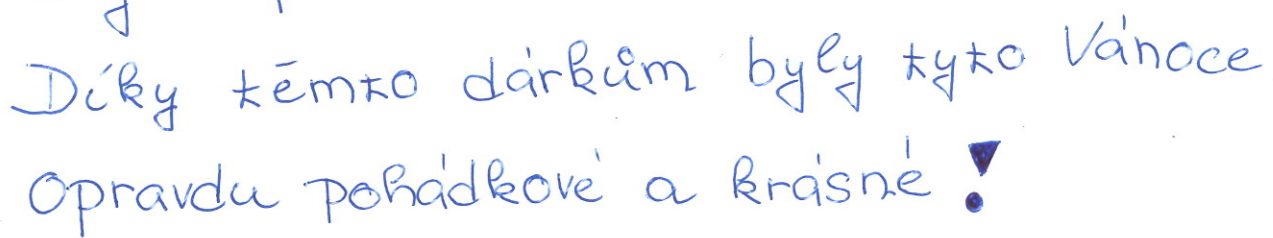 Díky těmto dárkům byly tyto Vánoce
opravdu pohádkové a krásné!